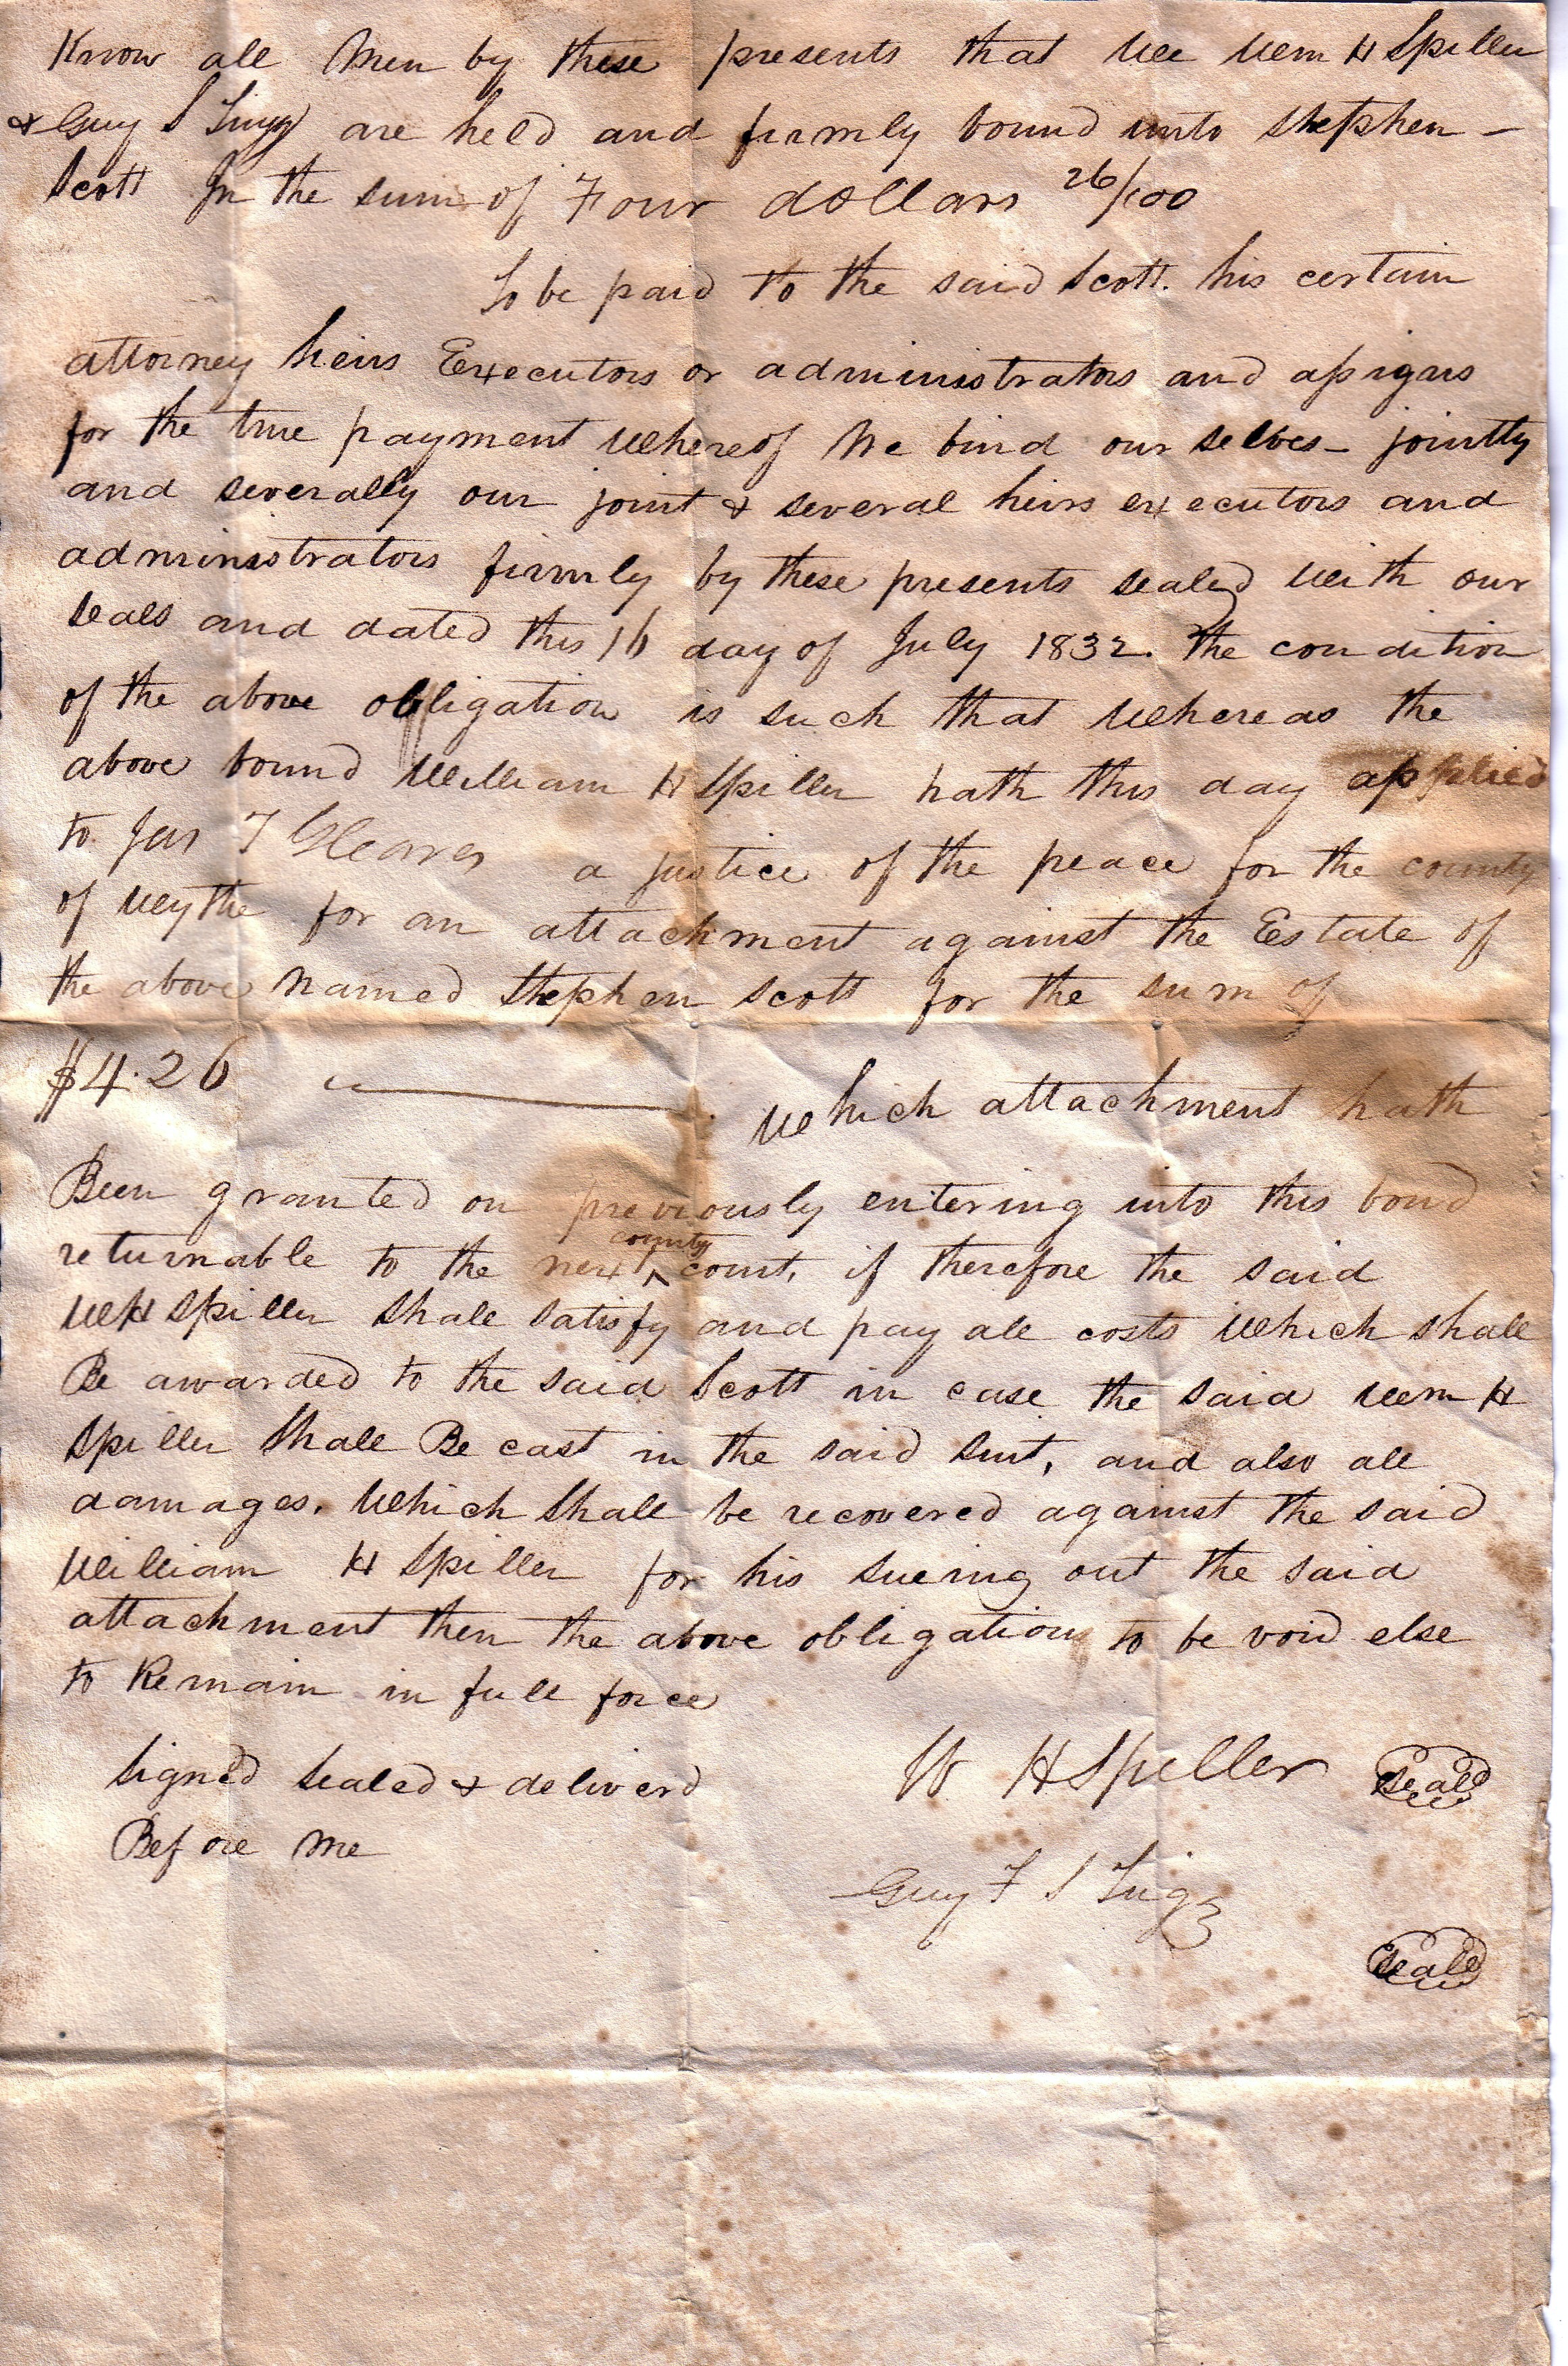 Know all Men by these presents that We Wm H Spiller
& Guy S Trigg are held and firmly bound unto Stephen –
Scott In the sum of Four dollars 26/100
To be paid to the said Scott. his certain
attorney heirs Executors or administrators and assigns
for the true payment Whereof We bind our selves – jointly
and severally our joint & several heirs executors and
administrators firmly by these presents sealed With our
seals and dated this 16 day of July 1832. The condition
of the above obligation is such that Whereas the
above bound William H Spiller hath this day applied
to Jas T Gleaves a justice of the peace for the county
of Wythe for an attachment against the Estate of
the above Named Stephen Scott for the sum of
$4.26 Which attachment hath
Been granted on previously entering into this bond
returnable to the next ^county court, if therefore the said
WH Spiller shall satisfy and pay all costs Which shall
Be awarded to the said Scott in case the said Wm H
Spiller Shall Be cast in the said Suit, and also all
damages. Which Shall be recovered against the said
William H Spiller for his sueing out the said
attachment then the above obligation to be void else
to Remain in full force
Signed Sealed & deliverd
Before Me
W H Spiller Seal
Guy F S Trigg
Seal